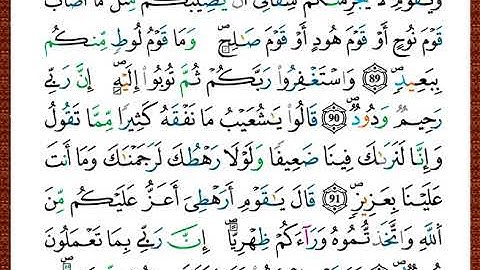 وَيَـٰقَوْمِ لَا يَجْرِمَنَّكُمْ شِقَاقِىٓ أَن يُصِيبَكُم مِّثْلُ مَآ أَصَابَ
قَوْمَ نُوحٍ أَوْ قَوْمَ هُودٍ أَوْ قَوْمَ صَـٰلِحٍ ۚ وَمَا قَوْمُ لُوطٍ مِّنكُم
بِبَعِيدٍ ٨٩ وَٱسْتَغْفِرُوا۟ رَبَّكُمْ ثُمَّ تُوبُوٓا۟ إِلَيْهِ ۚ إِنَّ رَبِّى
رَحِيمٌ وَدُودٌ ٩٠ قَالُوا۟ يَـٰشُعَيْبُ مَا نَفْقَهُ كَثِيرًا مِّمَّا تَقُولُ
وَإِنَّا لَنَرَىٰكَ فِينَا ضَعِيفًا ۖ وَلَوْلَا رَهْطُكَ لَرَجَمْنَـٰكَ ۖ وَمَآ أَنتَ
عَلَيْنَا بِعَزِيزٍ ٩١ قَالَ يَـٰقَوْمِ أَرَهْطِىٓ أَعَزُّ عَلَيْكُم مِّنَ
ٱللَّهِ وَٱتَّخَذْتُمُوهُ وَرَآءَكُمْ ظِهْرِيًّا ۖ إِنَّ رَبِّى بِمَا تَعْمَلُونَ